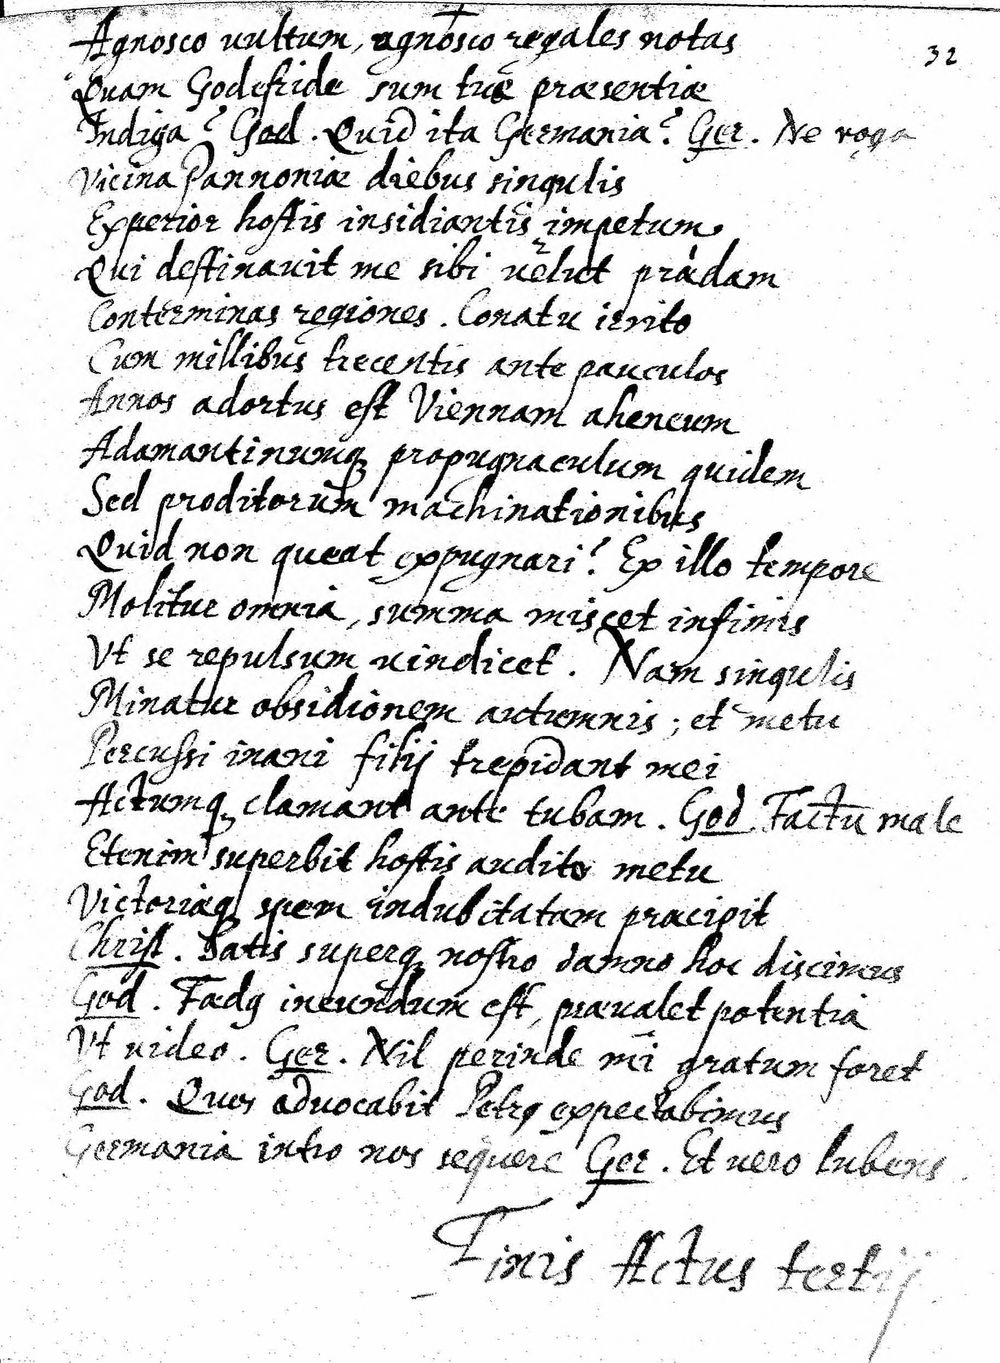 Agnosco uultum, agnosco regales notas
32
Quam Godefride sum tuæ præsentiæ
Indiga? God. Quid ita Germania? Ger. Ne roga
Vicina Pannoniæ diebus singulis
Experior hostis insidiantis impetum
Qui destinauit me sibi uelut prædam
Conterminas regiones. Conatu irrito
Cum millibus trecentis ante pauculos
Annos adortus est Viennam aheneum
Adamantinumq propugnaculum quidem
Sed proditorum machinationibus
Quid non queat expugnari? Ex illo tempore
Molitur omnia, summa miscet infimis
Vt se repulsum uindicet. Nam singulis
Minatur obsidionem autumnis; et metu
Percussi inani filij trepidant mei
Actumq clamant ante tubam. God. Factū male
Etenim superbit hostis audito metu
Victoriæq spem indubitatam præcipit
Christ. Satis superq nostro damno hoc discimus
God. Fædq ineundum est, præualet potentia
Vt uideo. Ger. Nil perinde mi gratum foret
God. Quos aduocabit Petrq expectabimus
Germania intro nos sequere Ger. Et uero lubens.
Finis Actus tertij